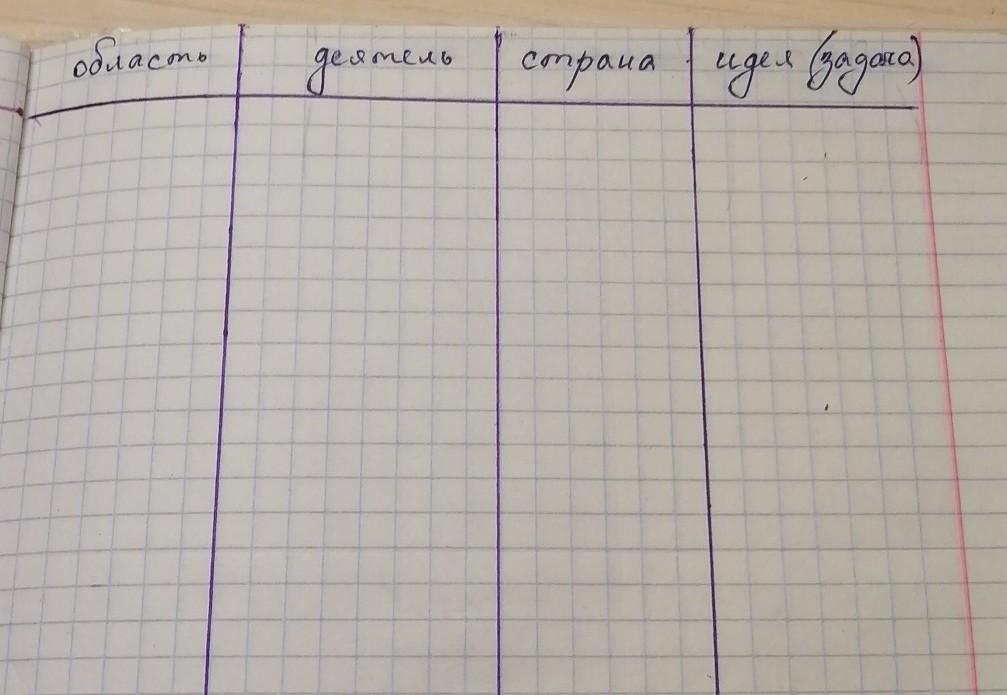 область деятель страна идея (задача)